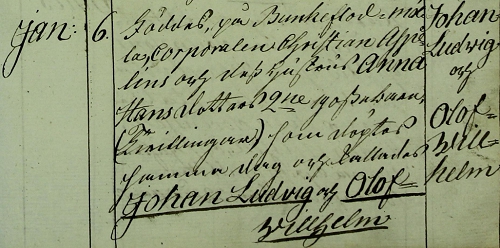 Jan: 6.
Föddes, på Bunkeflod-mö-
la, Corporalen Christian Appe-
lins och dess hustrus Anna
Hans dotters 2ne gossebarn,
(Tvillingar) som döptes
samma dag och kallades
Johan Ludvig och Olof-
Willhelm
Johan
Ludvig
och
Olof-
Will-
helm